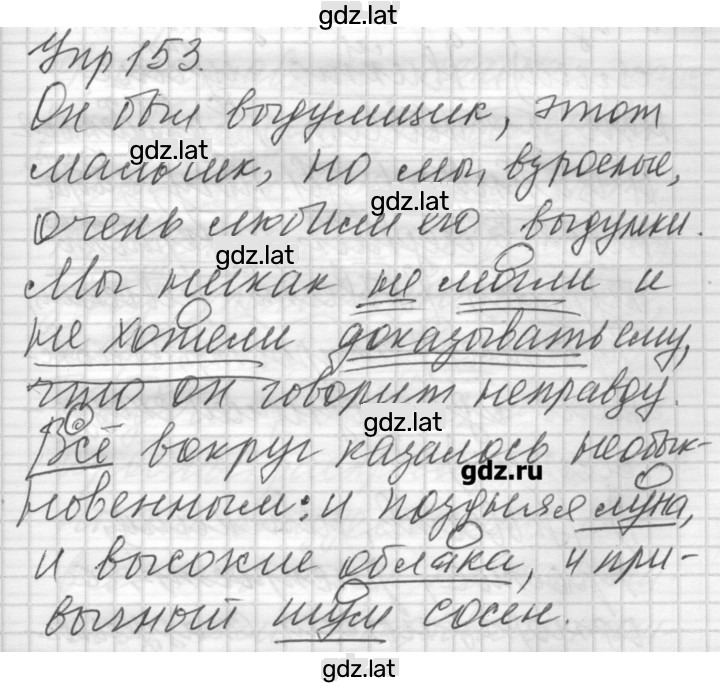 gdz.lat
Упр 153.
Он был выдумщик, этот
gdz.lat
мальчик, но мы, взрослые,
gdz.lat
очень любили его выдумки.
gdz.lat
Мы никак не могли и
не хотели доказывать ему,
что он говорит неправду.
gdz.lat
Всё вокруг казалось необык-
gdz.ru
новенным: и поздняя луна,
и высокие облака, и при-
вычный шум сосен.
gdz.lat